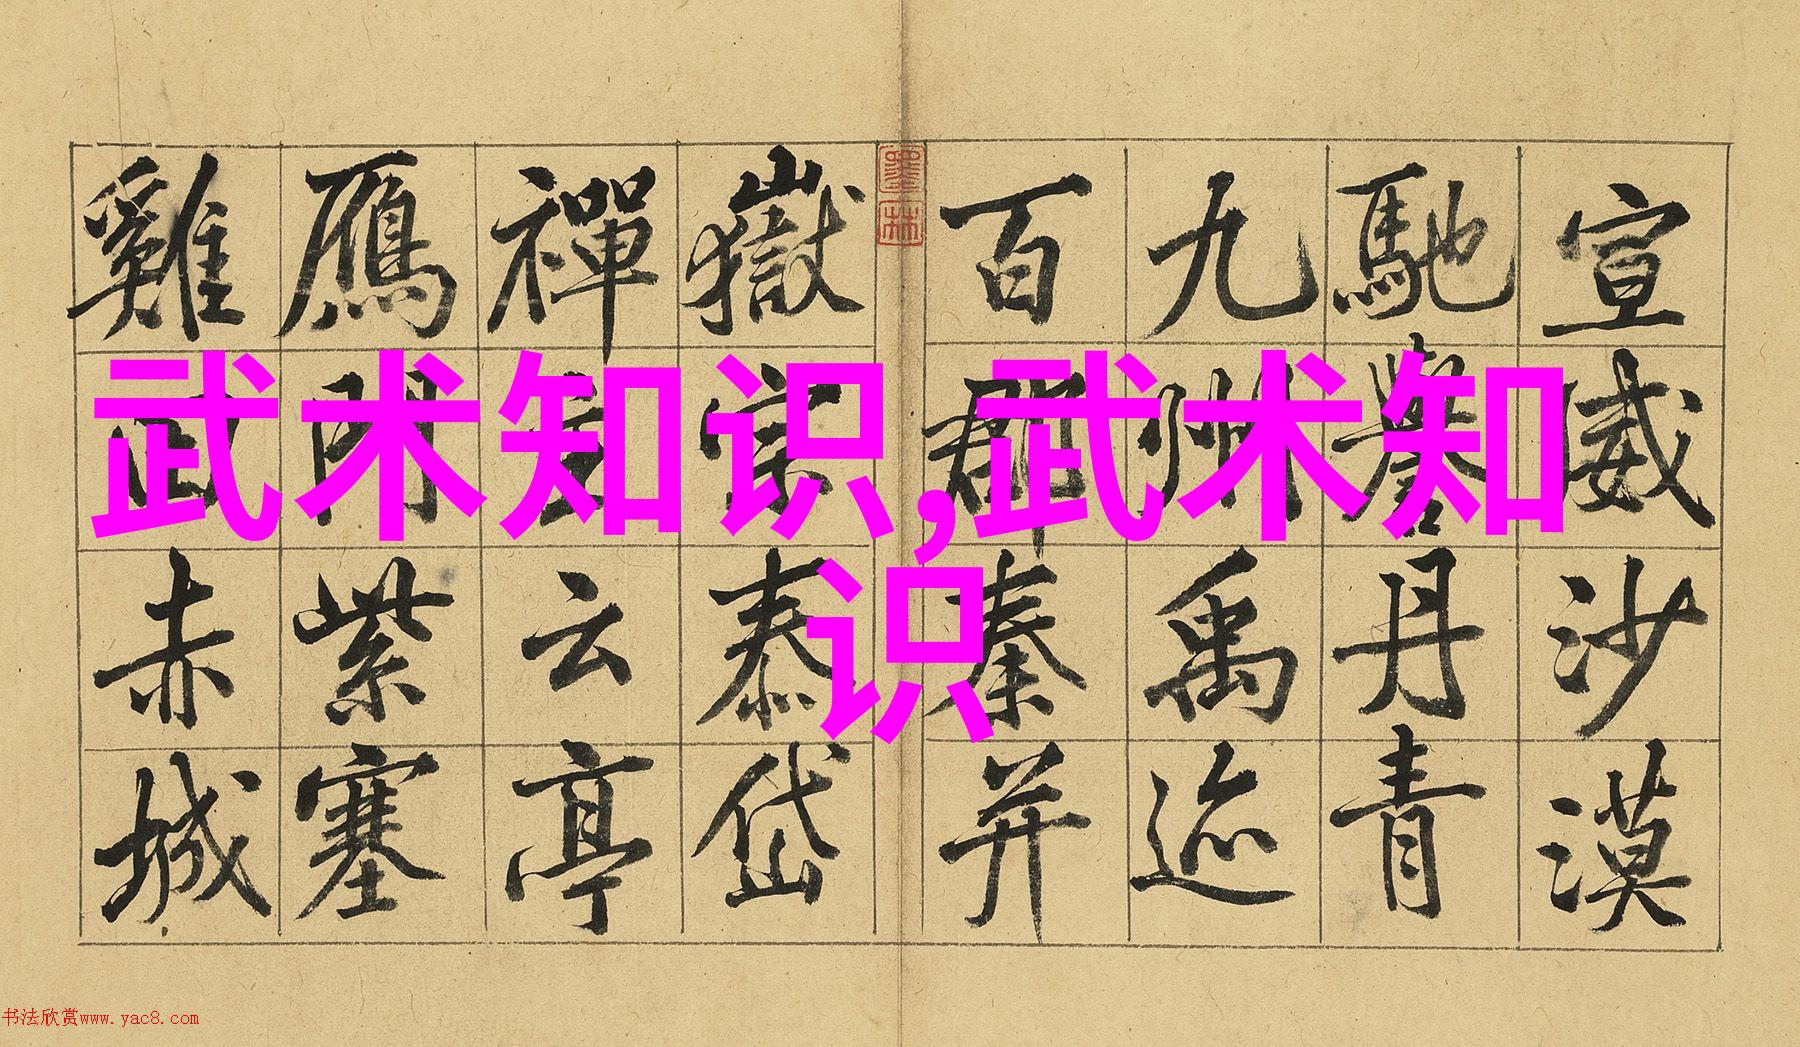 武术知识,武术知
识
宣威沙漠
馳譽丹青
九州禹迹
百郡秦并
嶽宗泰岱
禪主云亭
鴈門紫塞
雞田赤城
墨林
书法欣赏www.yac8.com